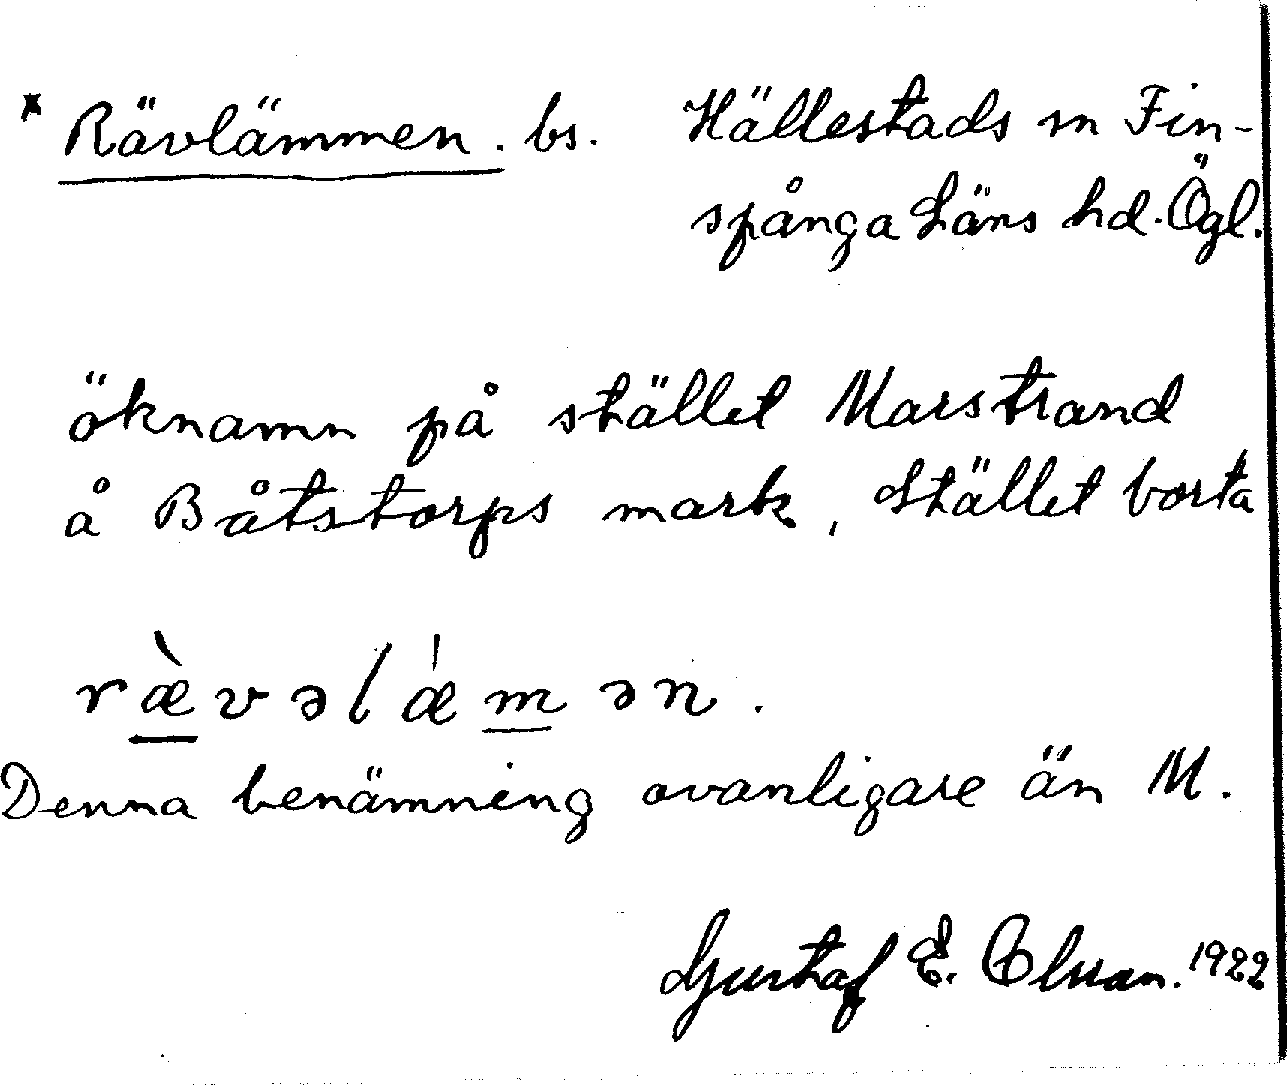 * Rävlämmen. bs. Hällestads sn Fin-
spånga Läns hd. Ögl.
öknamn på stället Marstrand
å Båtstorps mark, Stället borta
ræ̀vəlǽmən.
Denna benämning ovanligare än M.
Gustaf E. Olsson. 1922